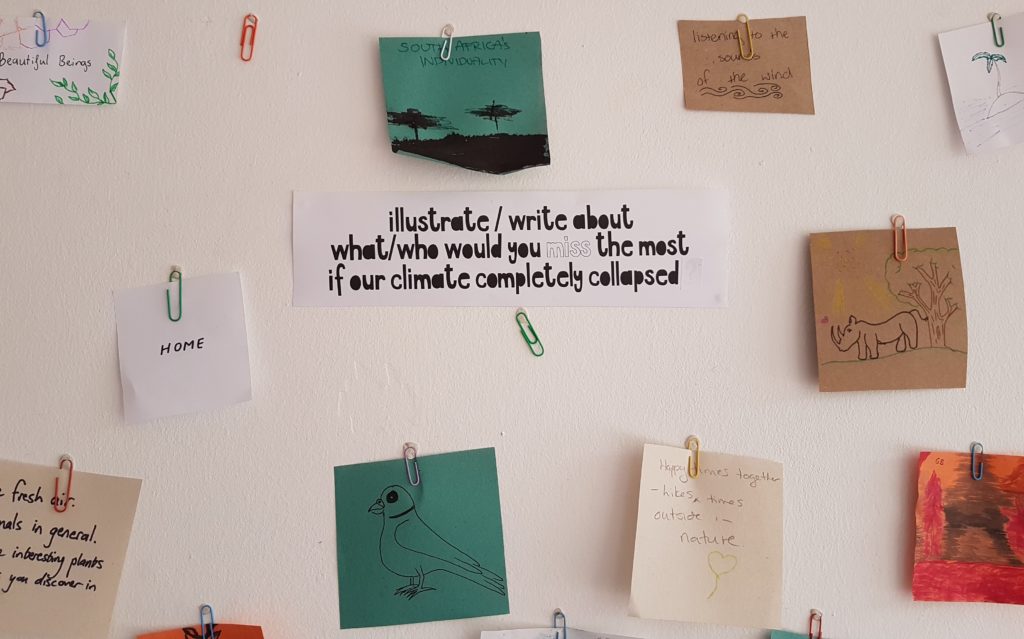 Beautiful Beings
SOUTH AFRICA'S
INDIVIDUALITY
listening to the
sounds
of the wind
illustrate / write about
what/who would you miss the most
if our climate completely collapsed
HOME
fresh air.
in general.
interesting plants
you discover in
Happy times together
- hikes, times
outside in
nature
GB